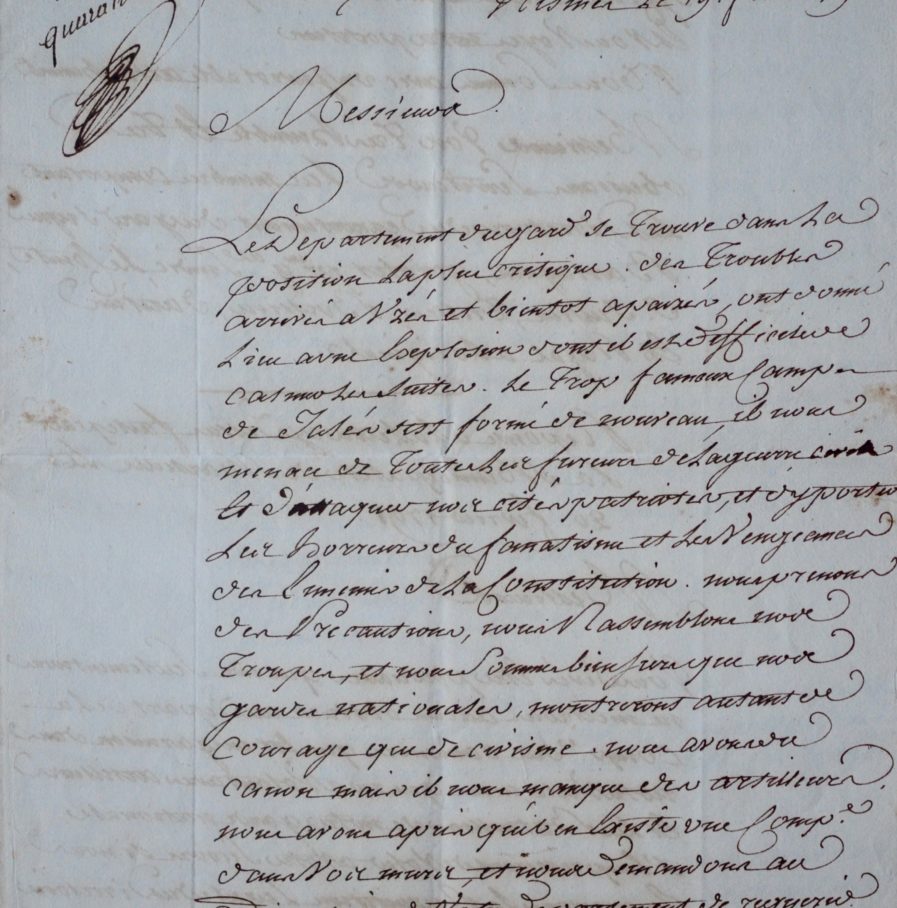 quaran
Nismes Le 19.
Messieurs
Le Departement du gard se Trouve dans La
position La plus critique. des Troubles
arrivés a Uzés et bientot apaizés, ont donné
Lieu a une Explosion dont il est difficile de
calmer Les Suites. Le Trop fameux Camp
de Jalés s'est formé de nouveau, il nous
menace de Toutes Les fureurs de La guerre civile
et d'attaquer nos cités patriotes, et d'y porter
Les Horreurs du fanatisme et Les Vengeances
des Ennemis de La Constitution. nous prenons
des Précautions, nous Rassemblons nos
Troupes, et nous Sommes bien surs que nos
gardes nationales, montreront autant de
Courage que de civisme. nous avons du
canon mais il nous manque des artilleurs.
nous avons apris qu'il en Existe une Comp.e
dans Vos murs, et nous Demandons au